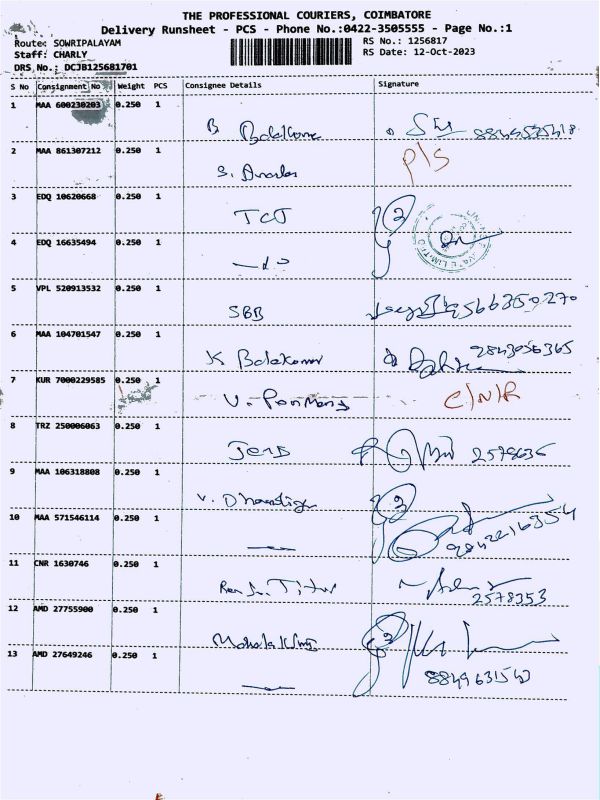 THE PROFESSIONAL COURIERS, COIMBATORE
Delivery Runsheet - PCS - Phone No.:0422-3505555 - Page No.:1
Route: SOWRIPALAYAM
RS No.: 1256817
Staff: CHARLY
RS Date: 12-Oct-2023
DRS No.: DCJB125681701
S No Consignment No Weight PCS Consignee Details Signature
1 MAA 600230203 0.250 1 B
2 MAA 861307212 0.250 1 S. P/S
3 EDQ 10620668 0.250 1 TCT
4 EDQ 16635494 0.250 1
5 VPL 520913532 0.250 1 SBB 9566350270
6 MAA 104701547 0.250 1 K Balakumar 2843056365
7 KUR 7000229585 0.250 1 C/N/R
8 TRZ 250006063 0.250 1 2578636
9 MAA 106318808 0.250 1 V.
10 MAA 571546114 0.250 1 9842216354
11 CNR 1630746 0.250 1 2578353
12 AMD 27755900 0.250 1
13 AMD 27649246 0.250 1 8849631540